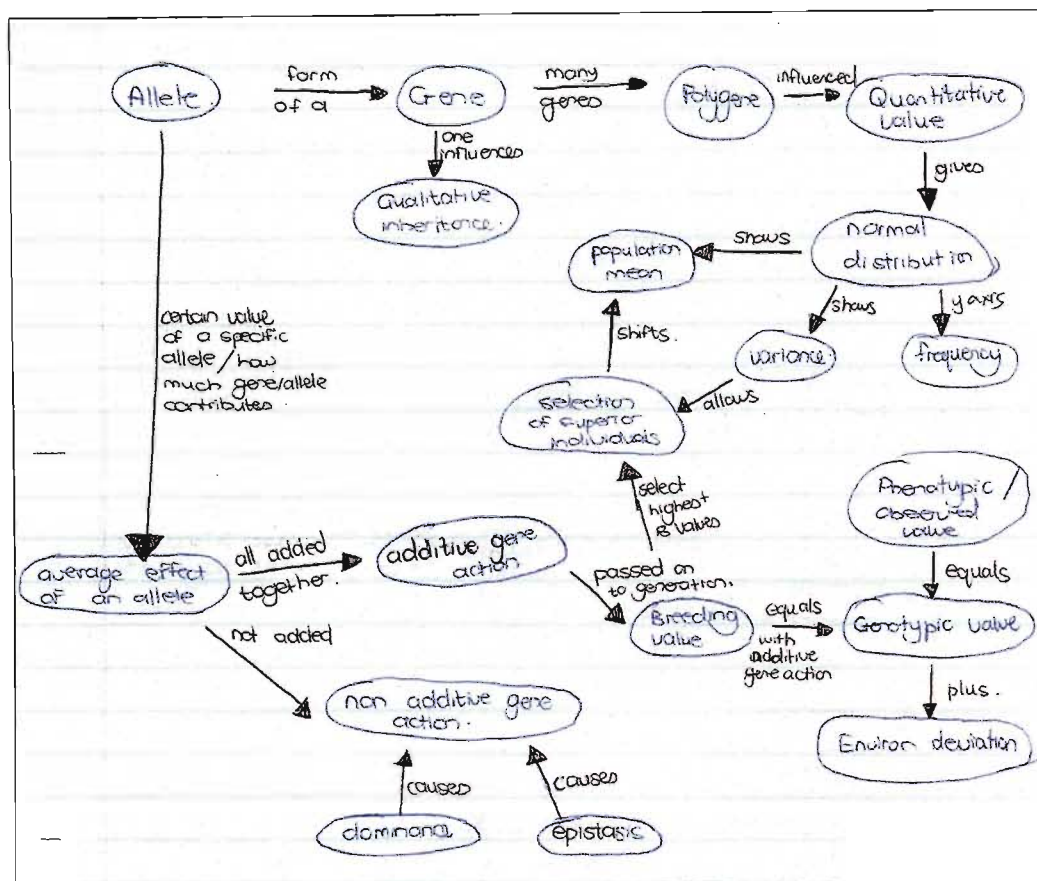 Allele
form
of a
Gene
many
genes
Polygene
influenced
Quantitative
value
one
influences
Qualitative
inheritence.
gives
normal
distribution
shows
population
mean
shows
y axis
variance
frequency
shifts.
allows
selection
of superior
individuals
certain value
of a specific
allele / how
much gene/allele
contributes.
select
highest
B values
Phenotypic /
observed
value
average effect
of an allele
all added
together.
additive gene
action
passed on
to generation.
Breeding
value
equals
with
additive
gene action
equals
Genotypic value
not added
non additive gene
action.
plus.
Environ deviation
causes
causes
epistasis